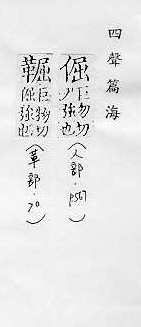 四聲篇海
倔 巨勿切 ノ強也 (人部·P567)
巨物切 倔強也 (革部·70)